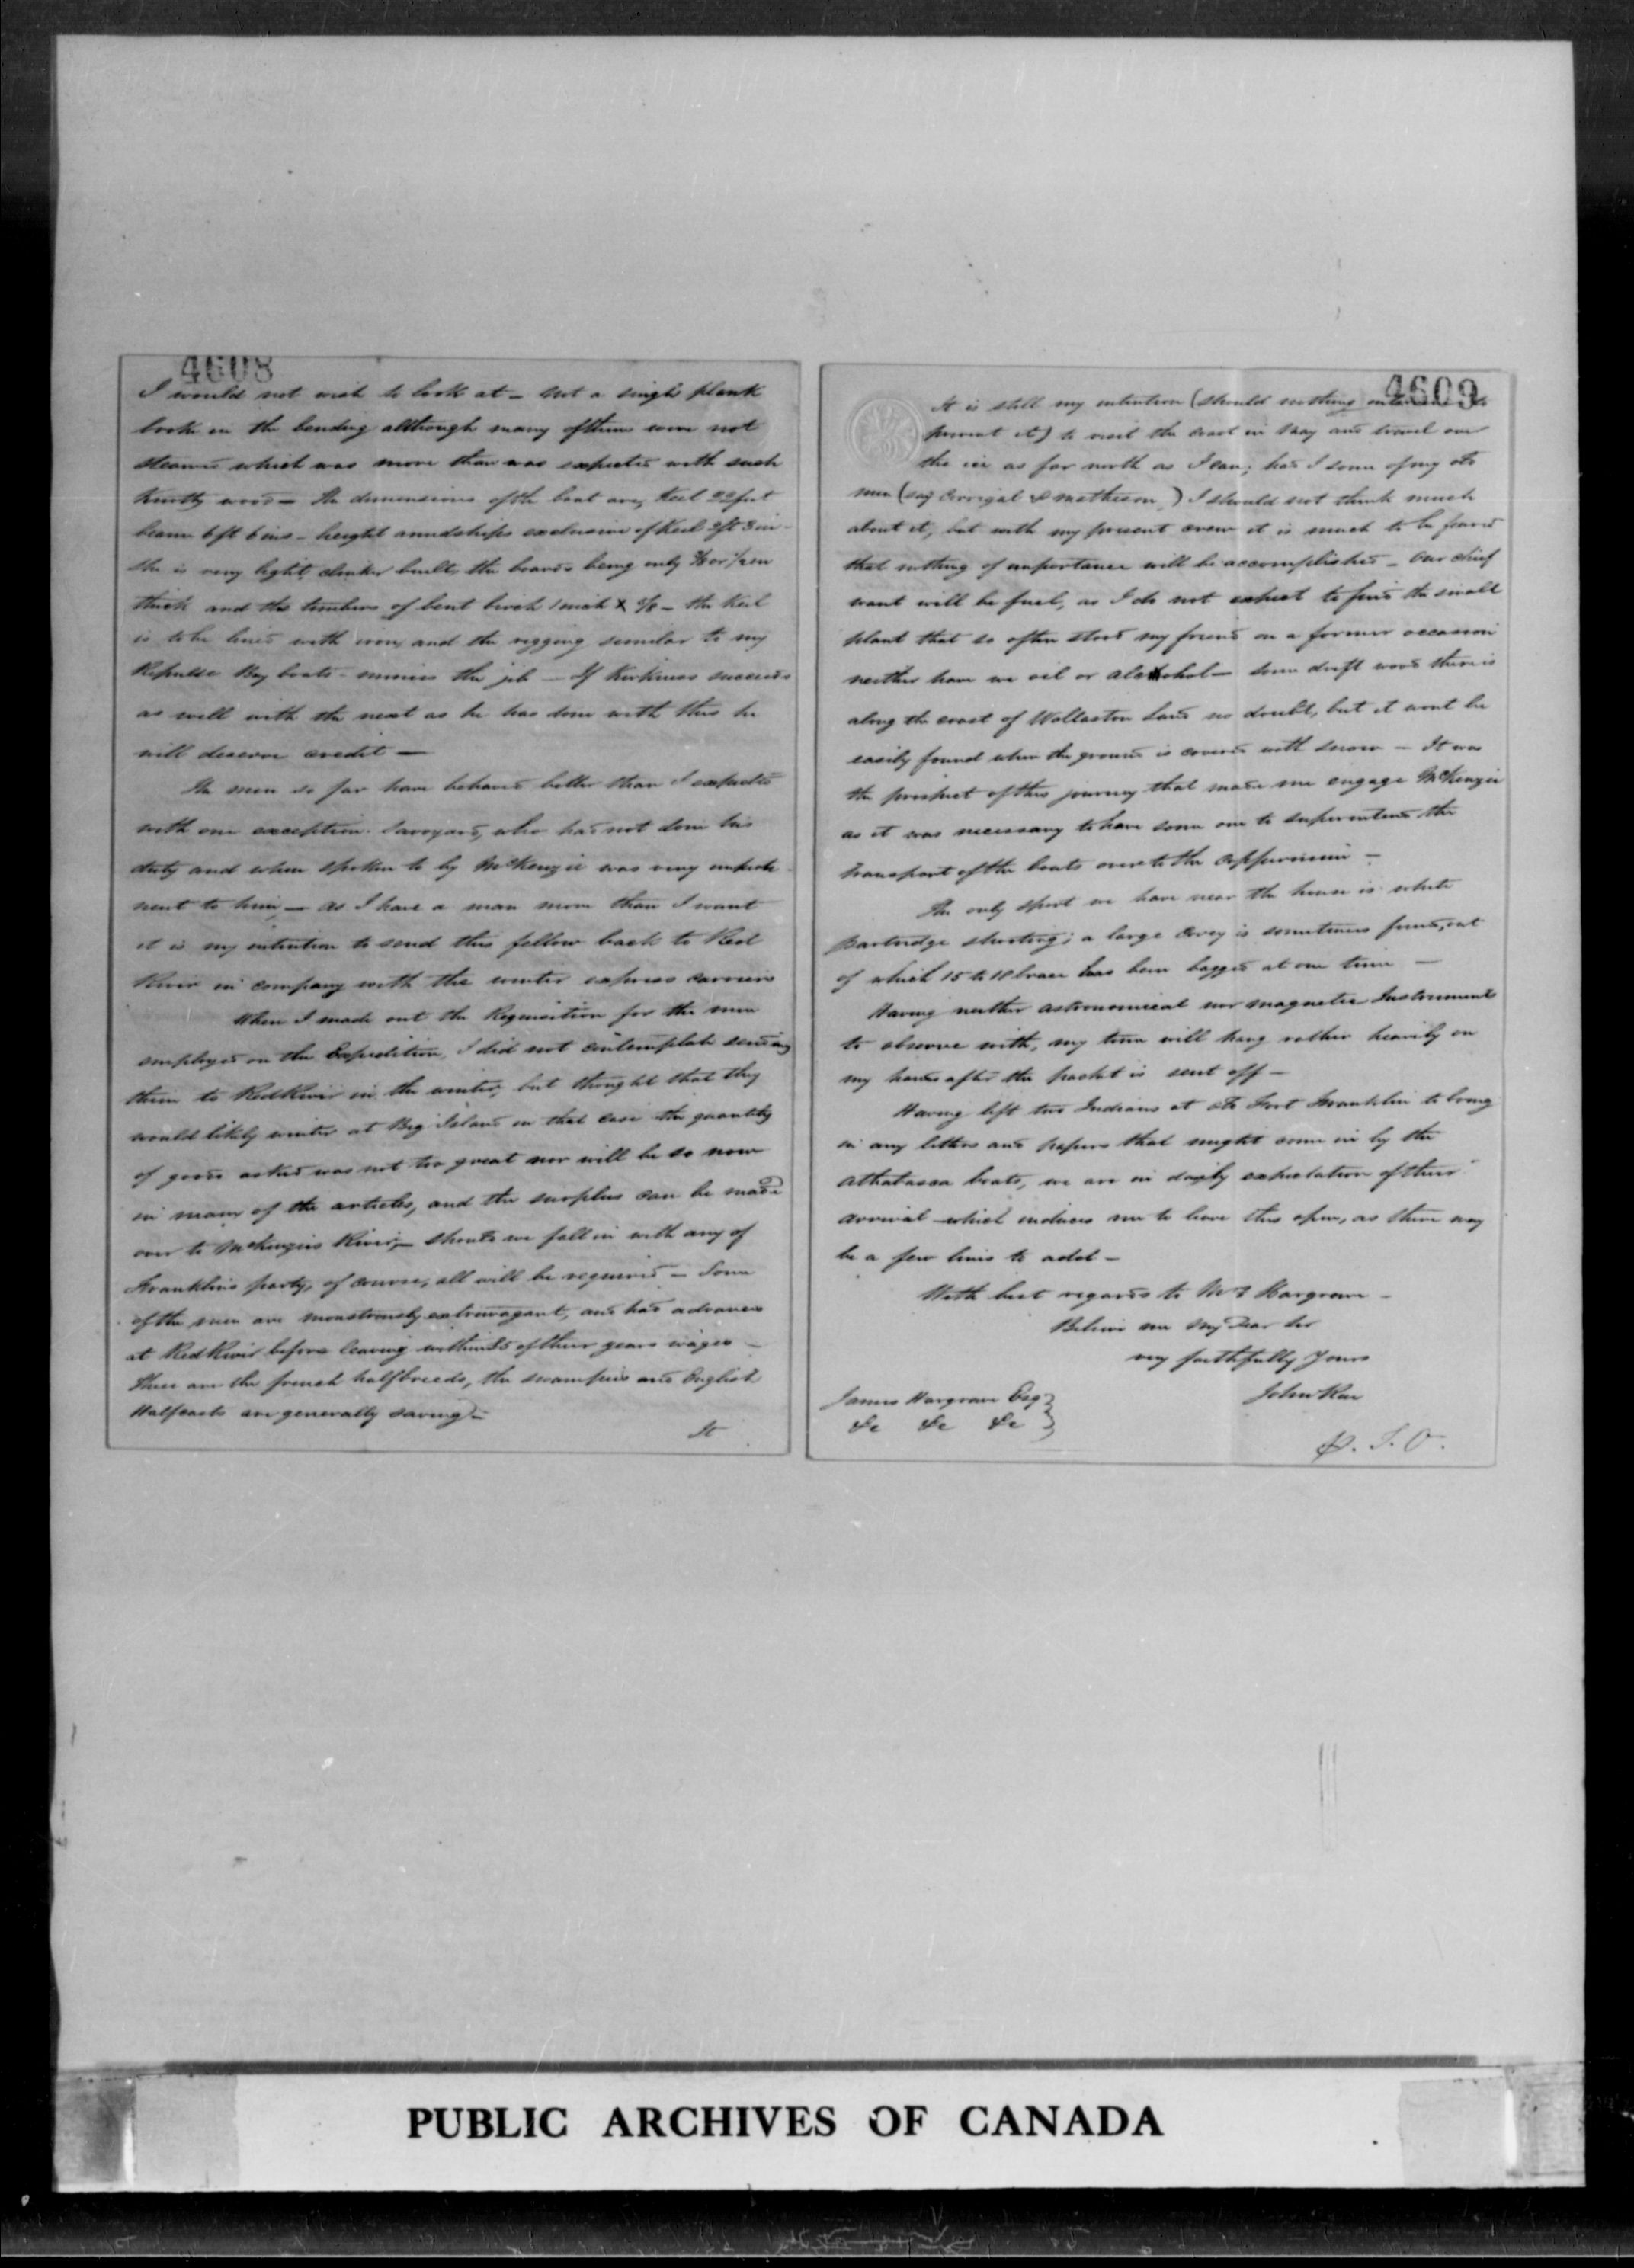 4608
I would not wish to look at – not a single plank
broke in the bending although many of them were not
steamed which was more than was expected with such
knotty wood – The dimensions of the boat are, Keel 22 feet
beam 6 ft 6 ins – height amidships exclusive of Keel 2ft 3in –
She is very light, clinker built, the boards being only or 1/2 in
thick and the timbers of bent birch 1 inch X 5/8 – the Keel
is to be lined with iron, and the rigging similar to my
Repulse Bay boats – minus the jib — If Kirkness succeeds
as well with the next as he has done with this he
will deserve credit —
The men so far have behaved better than I expected
with one exception. Savoyard, who has not done his
duty and when spoken to by McKenzie was very imperti-
nent to him, – As I have a man more than I want
it is my intention to send this fellow back to Red
River in company with the winter express carriers
When I made out the Requisition for the men
employed on the Expedition, I did not contemplate sending
them to Red River in the winter, but thought that they
would likely winter at Big Island in that case the quantity
of goods asked was not too great nor will be so now
in many of the articles, and the surplus can be made
over to McKenzies River, – should we fall in with any of
Franklin's party, of course, all will be required – Some
of the men are monstrously extravagant, and had advances
at Red River before leaving within £5 of their years wages –
These are the french halfbreeds, the swampies and English
Halfcasts are generally saving –
It
4609
It is still my intention (should nothing
prevent it) to visit the coast in May and travel over
the ice as far north as I can; had I some of my old
men (say Corrigal & Matheson,) I should not think much
about it, but with my present crew it is much to be feared
that nothing of importance will be accomplished – Our chief
want will be fuel, as I do not expect to find the small
plant that so often stood my friend on a former occasion
neither have we oil or alcohol – some drift wood there is
along the coast of Wollaston Land no doubt, but it wont be
easily found when the ground is covered with snow – It was
the prospect of this journey that made me engage McKenzie
as it was necessary to have some one to superintend the
transport of the boats over to the Coppermine –
The only sport we have near the house is white
partridge shooting; a large covey is sometimes found, out
of which 15 to 18 brace has been bagged at one time —
Having neither astronomical nor magnetic Instruments
to observe with, my time will hang rather heavily on
my hands after the packet is sent off –
Having left two Indians at old Fort Franklin to bring
in any letters and papers that might come in by the
Athabasca boats, we are in daily expectation of their
arrival – which induces me to leave this open, as there may
be a few lines to add –
With best regards to Mrs Hargrave –
Believe me My Dear Sir
very faithfully Yours
John Rae
James Hargrave Esq }
&c &c &c }
P. T. O.
PUBLIC ARCHIVES OF CANADA